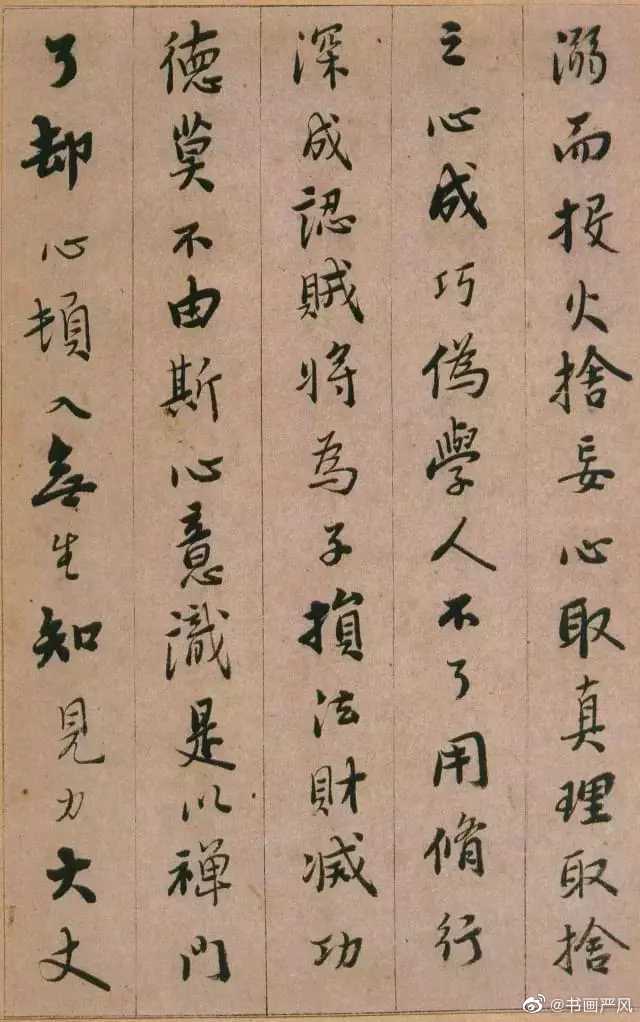 溺而投火捨妄心取真理取捨
之心成巧偽學人不了用脩行
深成認賊將為子損法財滅功
德莫不由斯心意識是以禅門
了却心頓入無生知見力大丈
@书画严风